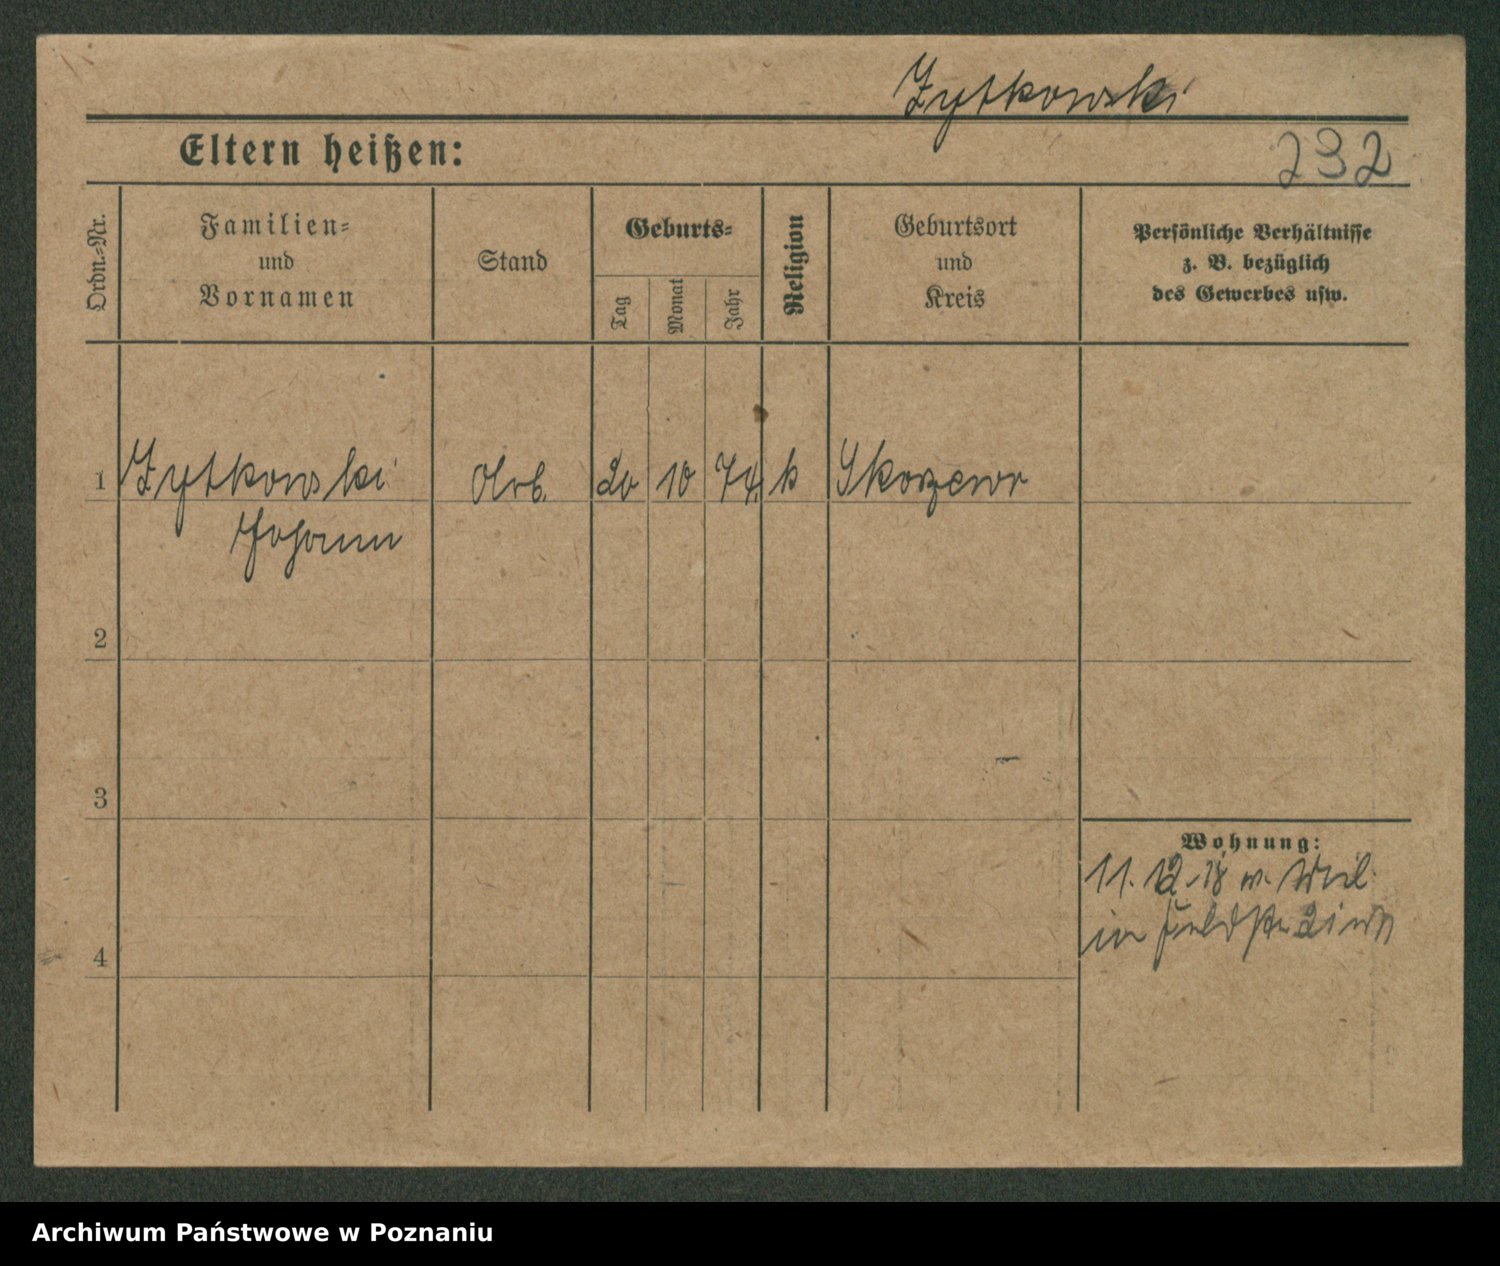 Zytkowski
Eltern heißen:
232
Ordn.-Nr.
Familien-
und
Vornamen
Stand
Geburts-
Tag
Monat
Jahr
Religion
Geburtsort
und
Kreis
Persönliche Verhältnisse
z. B. bezüglich
des Gewerbes usw.
1 Zytkowski Arb. 20 10 74 k Skorzewo
Johann
2
3
4
Wohnung:
11. 12. 18
in
Archiwum Państwowe w Poznaniu